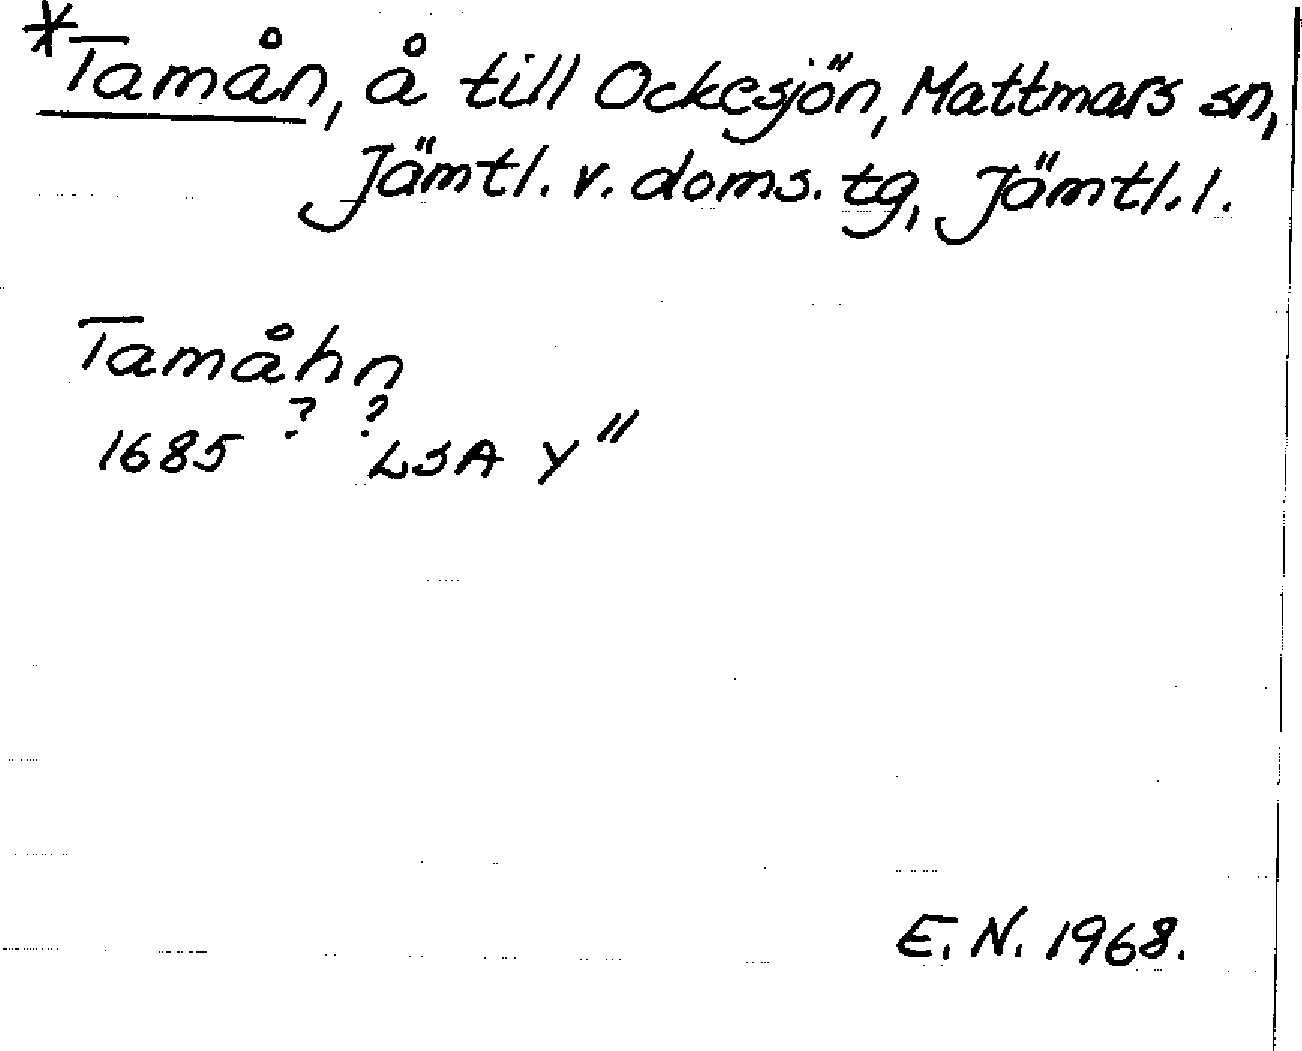 *Tamån, å till Ockesjön, Mattmars sn,
Jämtl. v. doms. tg, Jämtl. l.
Tamåhn
? ?
1685 LSA Y"
E. N. 1968.